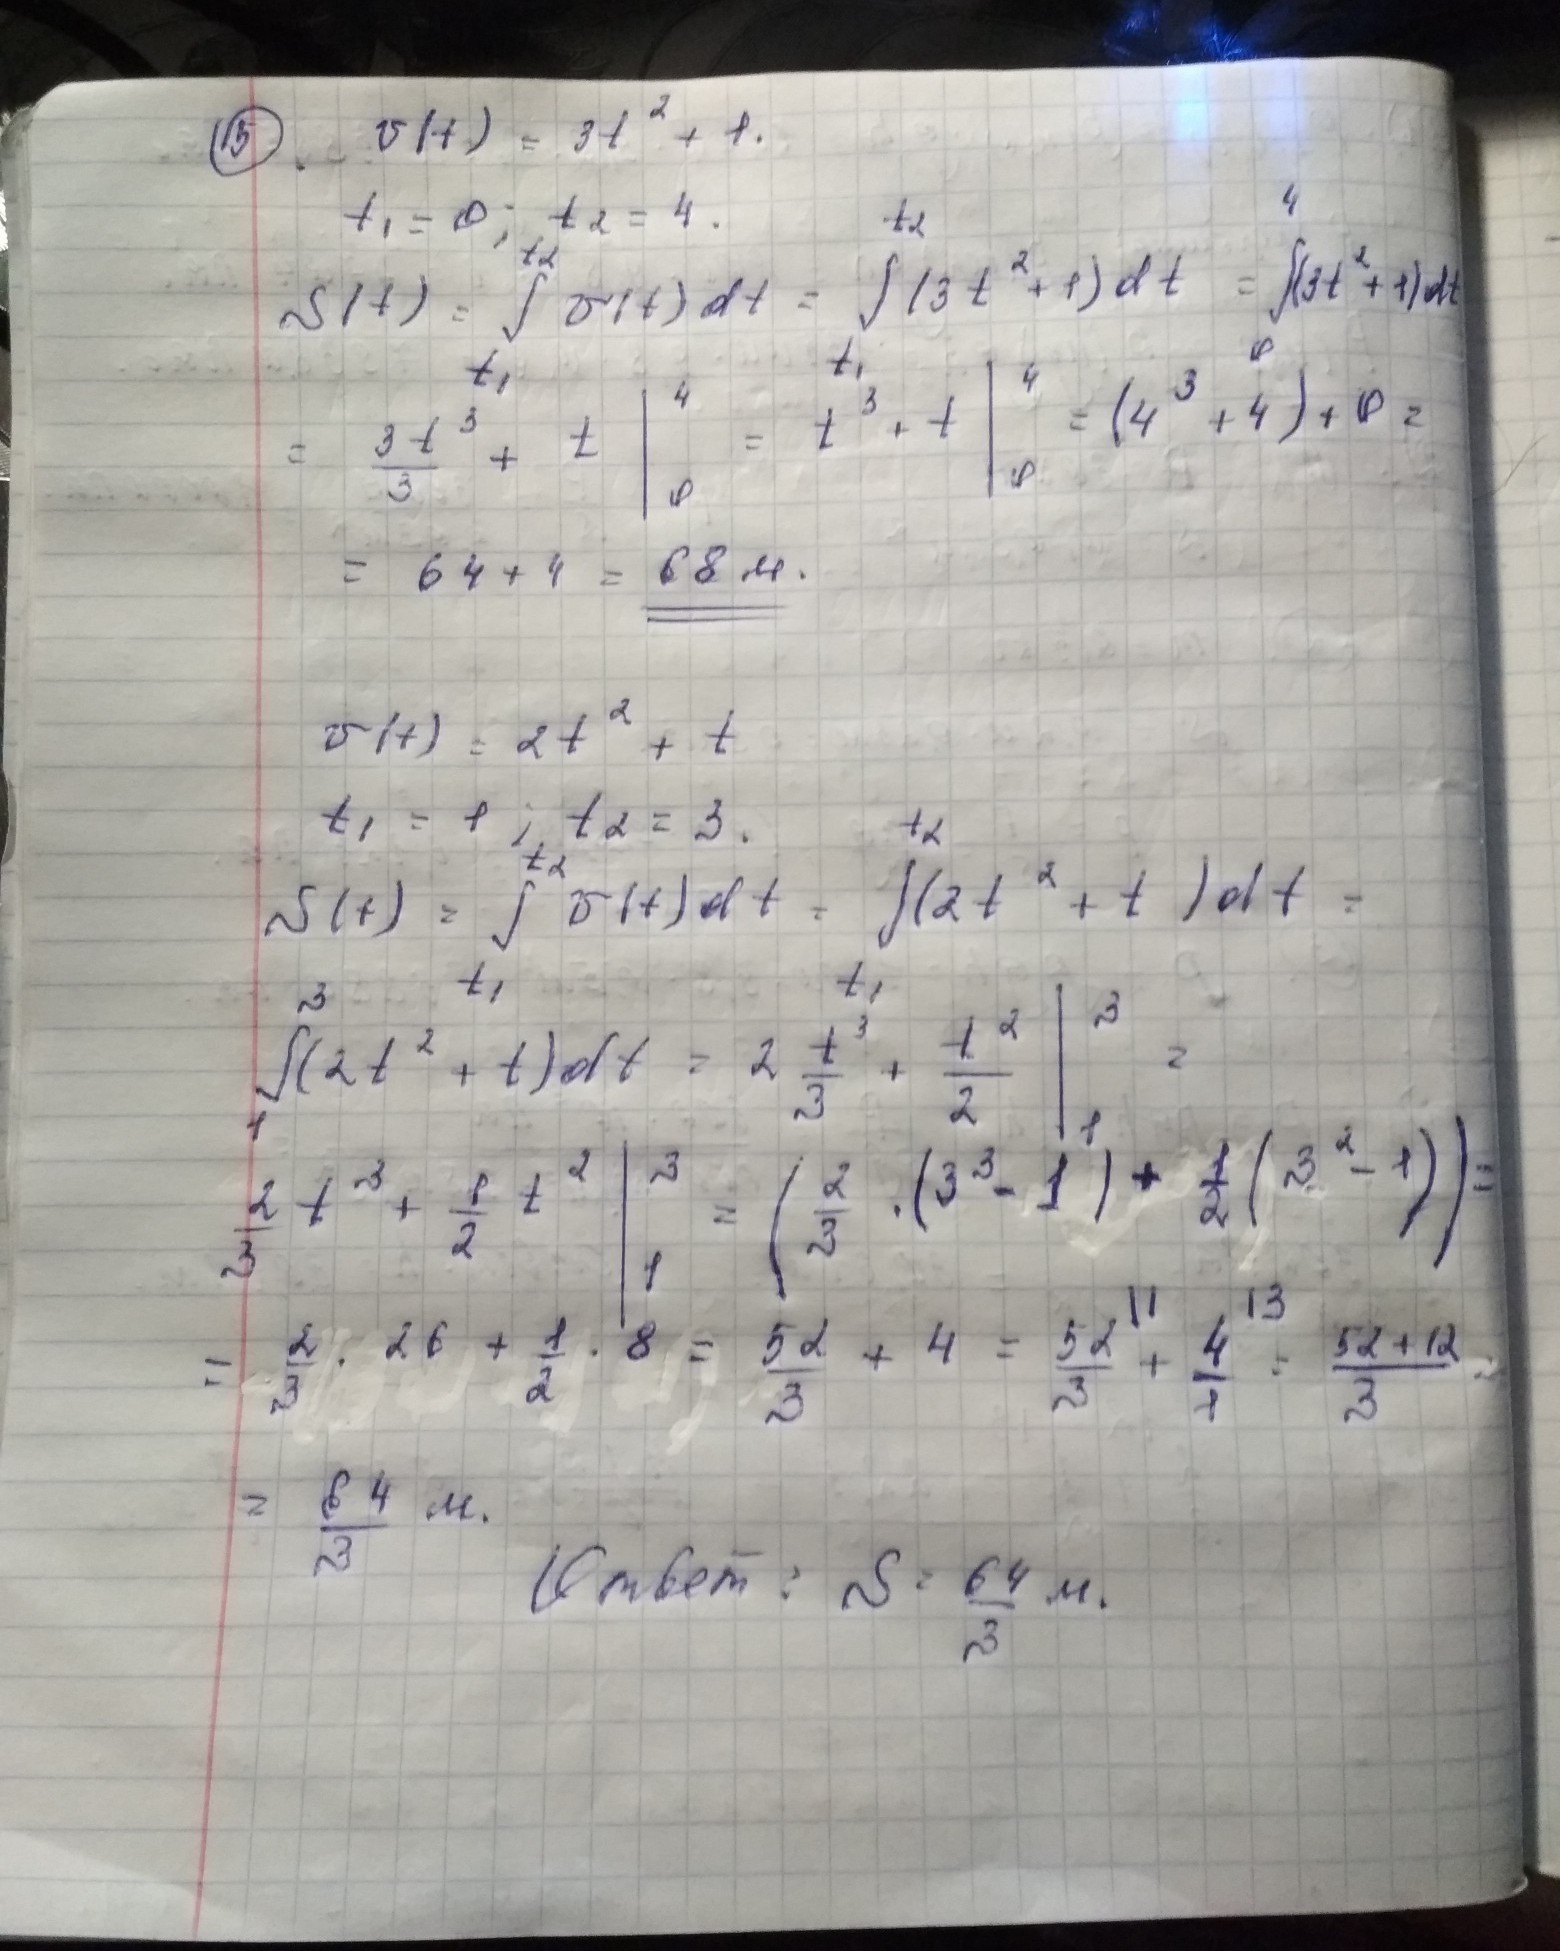 15. v(t) = 3t² + 1.
t₁ = 0; t₂ = 4.
S(t) = ∫ₜ₁ᵗ² v(t)dt = ∫ₜ₁ᵗ² (3t² + 1)dt = ∫₀⁴ (3t² + 1)dt
= 3t³/3 + t |₀⁴ = t³ + t |₀⁴ = (4³ + 4) + 0 =
= 64 + 4 = 68 м.
v(t) = 2t² + t
t₁ = 1; t₂ = 3.
S(t) = ∫ₜ₁ᵗ² v(t)dt = ∫ₜ₁ᵗ² (2t² + t)dt =
∫₁³ (2t² + t)dt = 2 t³/3 + t²/2 |₁³ =
2/3 t³ + 1/2 t² |₁³ = (2/3 · (3³ - 1) + 1/2 (3² - 1)) =
= 2/3 · 26 + 1/2 · 8 = 52/3 + 4 = 52/3 \1 + 4/1 \3 = 52+12/3 =
= 64/3 м.
Ответ: S = 64/3 м.